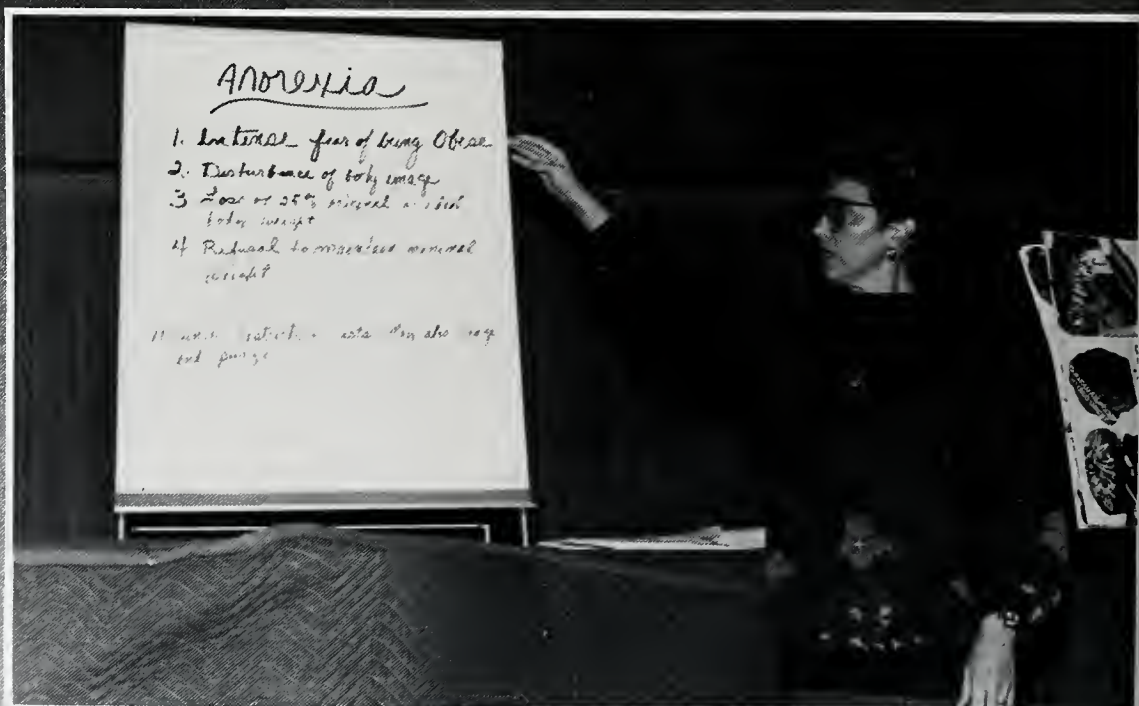 Anorexia
1. Intense fear of being Obese
2. Disturbance of body image
3 Loss of 25% original
body weight
4 Refusal to maintain minimal
weight
may also
and purge